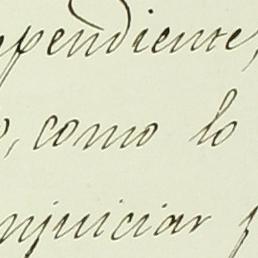 pendiente,
o, como lo
njuiciar